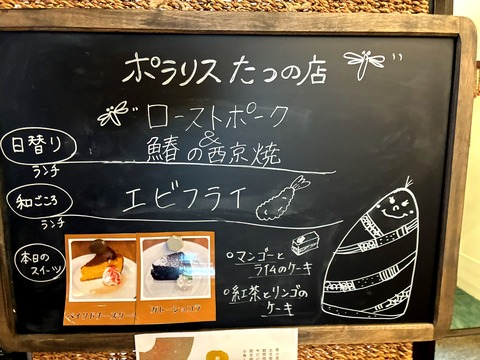 ポラリス たつの店
日替り
ランチ
ローストポーク
&
鰆の西京焼
和ごころ
ランチ
エビフライ
本日の
スイーツ
ベイクドチーズケーキ
ガトーショコラ
・マンゴーと
ライムのケーキ
・紅茶とリンゴの
ケーキ